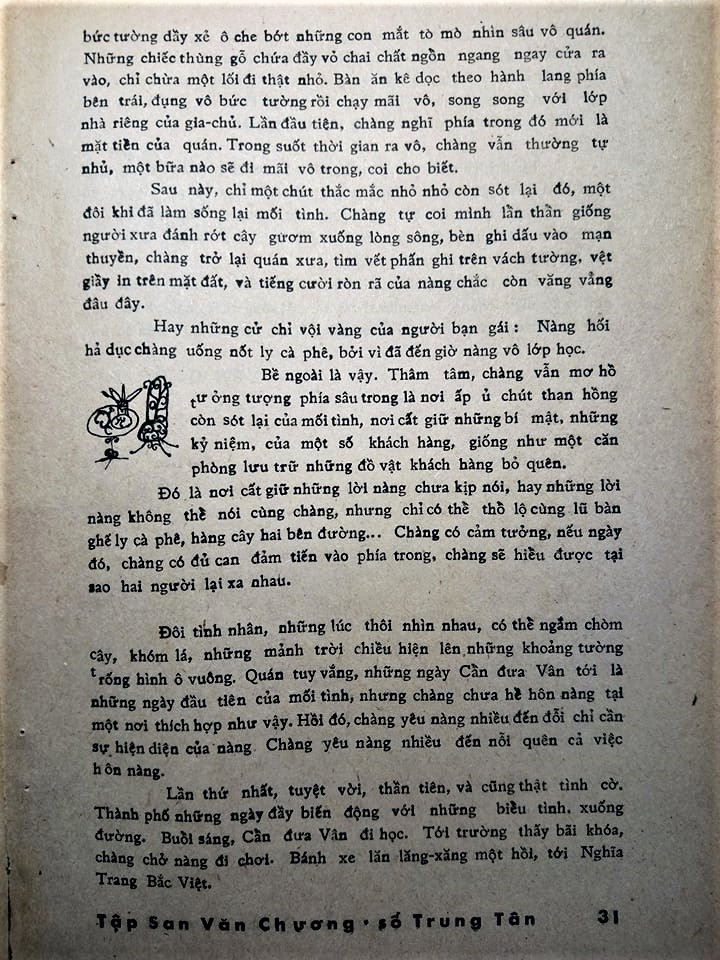 bức tường đầy xẻ ô che bớt những con mắt tò mò nhìn sâu vô quán.
Những chiếc thùng gỗ chứa đầy vỏ chai chất ngồn ngang ngay cửa ra
vào, chỉ chừa một lối đi thật nhỏ. Bàn ăn kê dọc theo hành lang phía
bên trái, đụng vô bức tường rồi chạy mãi vô, song song với lớp
nhà riêng của gia-chủ. Lần đầu tiện, chàng nghĩ phía trong đó mới là
mặt tiền của quán. Trong suốt thời gian ra vô, chàng vẫn thường tự
nhủ, một bữa nào sẽ đi mãi vô trong, coi cho biết.
Sau này, chỉ một chút thắc mắc nhỏ nhỏ còn sót lại đó, một
đôi khi đã làm sống lại mối tình. Chàng tự coi mình lẩn thẩn giống
người xưa đánh rớt cây gươm xuống lòng sông, bèn ghi dấu vào mạn
thuyền, chàng trở lại quán xưa, tìm vết phấn ghi trên vách tường, vệt
giầy in trên mặt đất, và tiếng cười ròn rã của nàng chắc còn văng vẳng
đâu đây.
Hay những cử chỉ vội vàng của người bạn gái : Nàng hối
hả dục chàng uống nốt ly cà phê, bởi vì đã đến giờ nàng vô lớp học.
Bề ngoài là vậy. Thâm tâm, chàng vẫn mơ hồ
tư ởng tượng phía sâu trong là nơi ấp ủ chút than hồng
còn sót lại của mối tình, nơi cất giữ những bí mật, những
kỷ niệm, của một số khách hàng, giống như một căn
phòng lưu trữ những đồ vật khách hàng bỏ quên.
Đó là nơi cất giữ những lời nàng chưa kịp nói, hay những lời
nàng không thể nói cùng chàng, nhưng chỉ có thể thổ lộ cùng lũ bàn
ghế ly cà phê, hàng cây hai bên đường... Chàng có cảm tưởng, nếu ngày
đó, chàng có đủ can đảm tiến vào phía trong, chàng sẽ hiểu được tại
sao hai người lại xa nhau.
Đôi tình nhân, những lúc thôi nhìn nhau, có thể ngắm chòm
cây, khóm lá, những mảnh trời chiều hiện lên những khoảng tường
trống hình ô vuông. Quán tuy vắng, những ngày Cần đưa Vân tới là
những ngày đầu tiên của mối tình, nhưng chàng chưa hề hôn nàng tại
một nơi thích hợp như vậy. Hồi đó, chàng yêu nàng nhiều đến đỗi chỉ cần
sự hiện diện của nàng. Chàng yêu nàng nhiều đến nỗi quên cả việc
hôn nàng.
Lần thứ nhất, tuyệt vời, thần tiên, và cũng thật tình cờ.
Thành phố những ngày đầy biến động với những biểu tình. xuống
đường. Buổi sáng, Cần đưa Vân đi học. Tới trường thấy bãi khóa,
chàng chở nàng đi chơi. Bánh xe lăn lăng-xăng một hồi, tới Nghĩa
Trang Bắc Việt.
Tập San Văn Chương • số Trung Tân 31